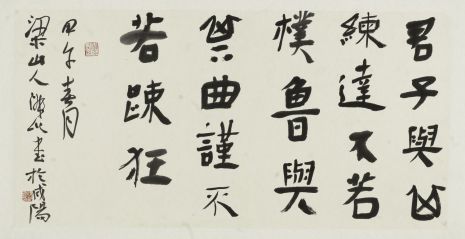 君子與其
練達不若
樸魯與
其曲謹不
若踈狂
甲午春月
梁山人書於咸陽